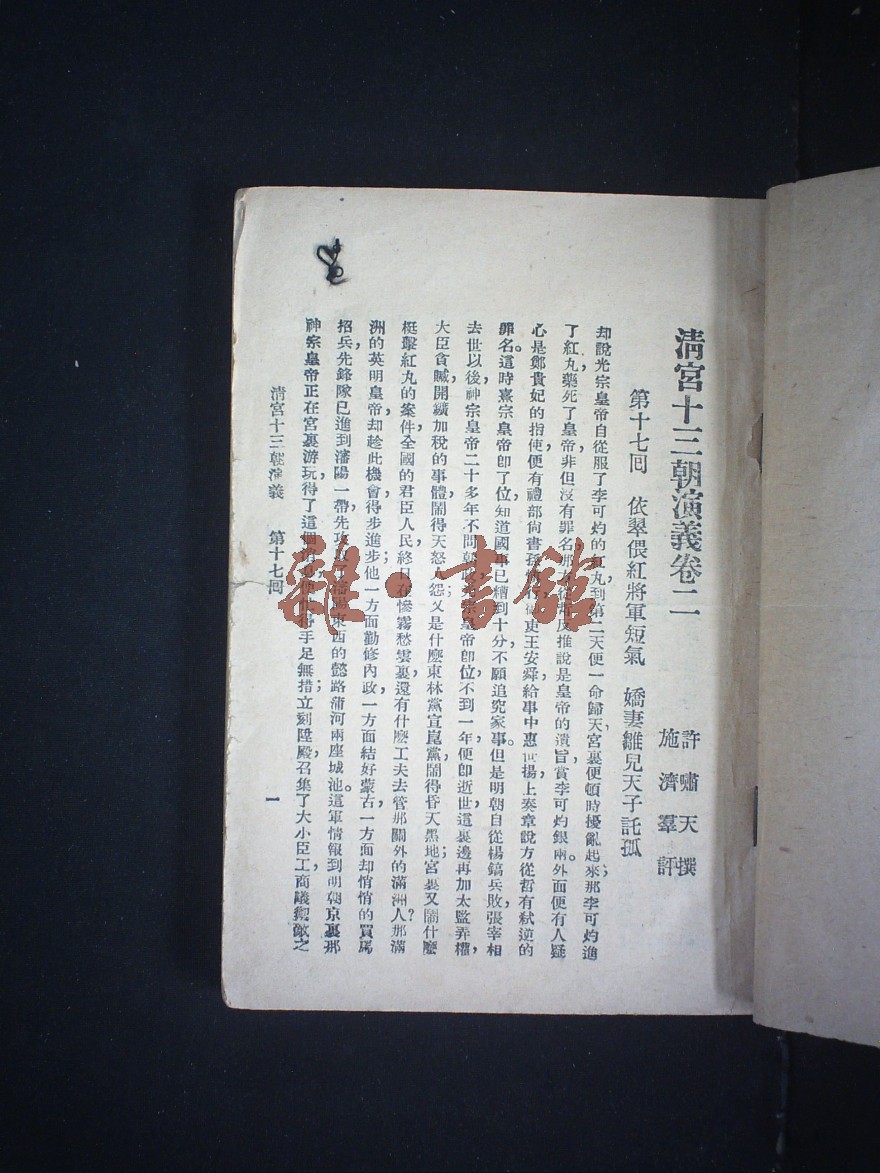 清宮十三朝演義卷二
許嘯天撰
施濟羣評
第十七回　依翠偎紅將軍短氣　嬌妻雛兒天子託孤
却說光宗皇帝自從服了李可灼的紅丸、到第二天便一命歸天、宮裏便頓時擾亂起來、那李可灼進
了紅丸、藥死了皇帝、非但沒有罪名、那方從哲反推說是皇帝的遺旨、賞李可灼銀兩。外面便有人疑
心是鄭貴妃的指使、便有禮部尙書孫王安舜給事中惠世揚、上奏章說方從哲有弒逆的
罪名。這時熹宗皇帝卽了位、知道國事已糟到十分、不願追究家事。但是明朝自從楊鎬兵敗、張宰相
去世以後、神宗皇帝二十多年不問朝政、光宗皇帝卽位不到一年、便卽逝世、這裏邊再加太監弄權、
大臣貪贓、開鑛加稅的事體、鬧得天怒人怨；又是什麼東林黨宣崑黨、鬧得昏天黑地；宮裏又鬧什麼
梃擊紅丸的案件、全國的君臣人民、終日在慘霧愁雲裏、還有什麼工夫去管那關外的滿洲人？那滿
洲的英明皇帝、却趁此機會、得步進步、他一方面勤修內政、一方面結好蒙古、一方面却悄悄的買馬
招兵、先鋒隊已進到瀋陽一帶、先攻東西的懿路蒲河兩座城池。這軍情報到明朝京裏、那
神宗皇帝正在宮裏游玩、得了這個手足無措；立刻陞殿、召集了大小臣工、商議禦敵之
清宮十三朝演義　第十七回
一
雜·書館